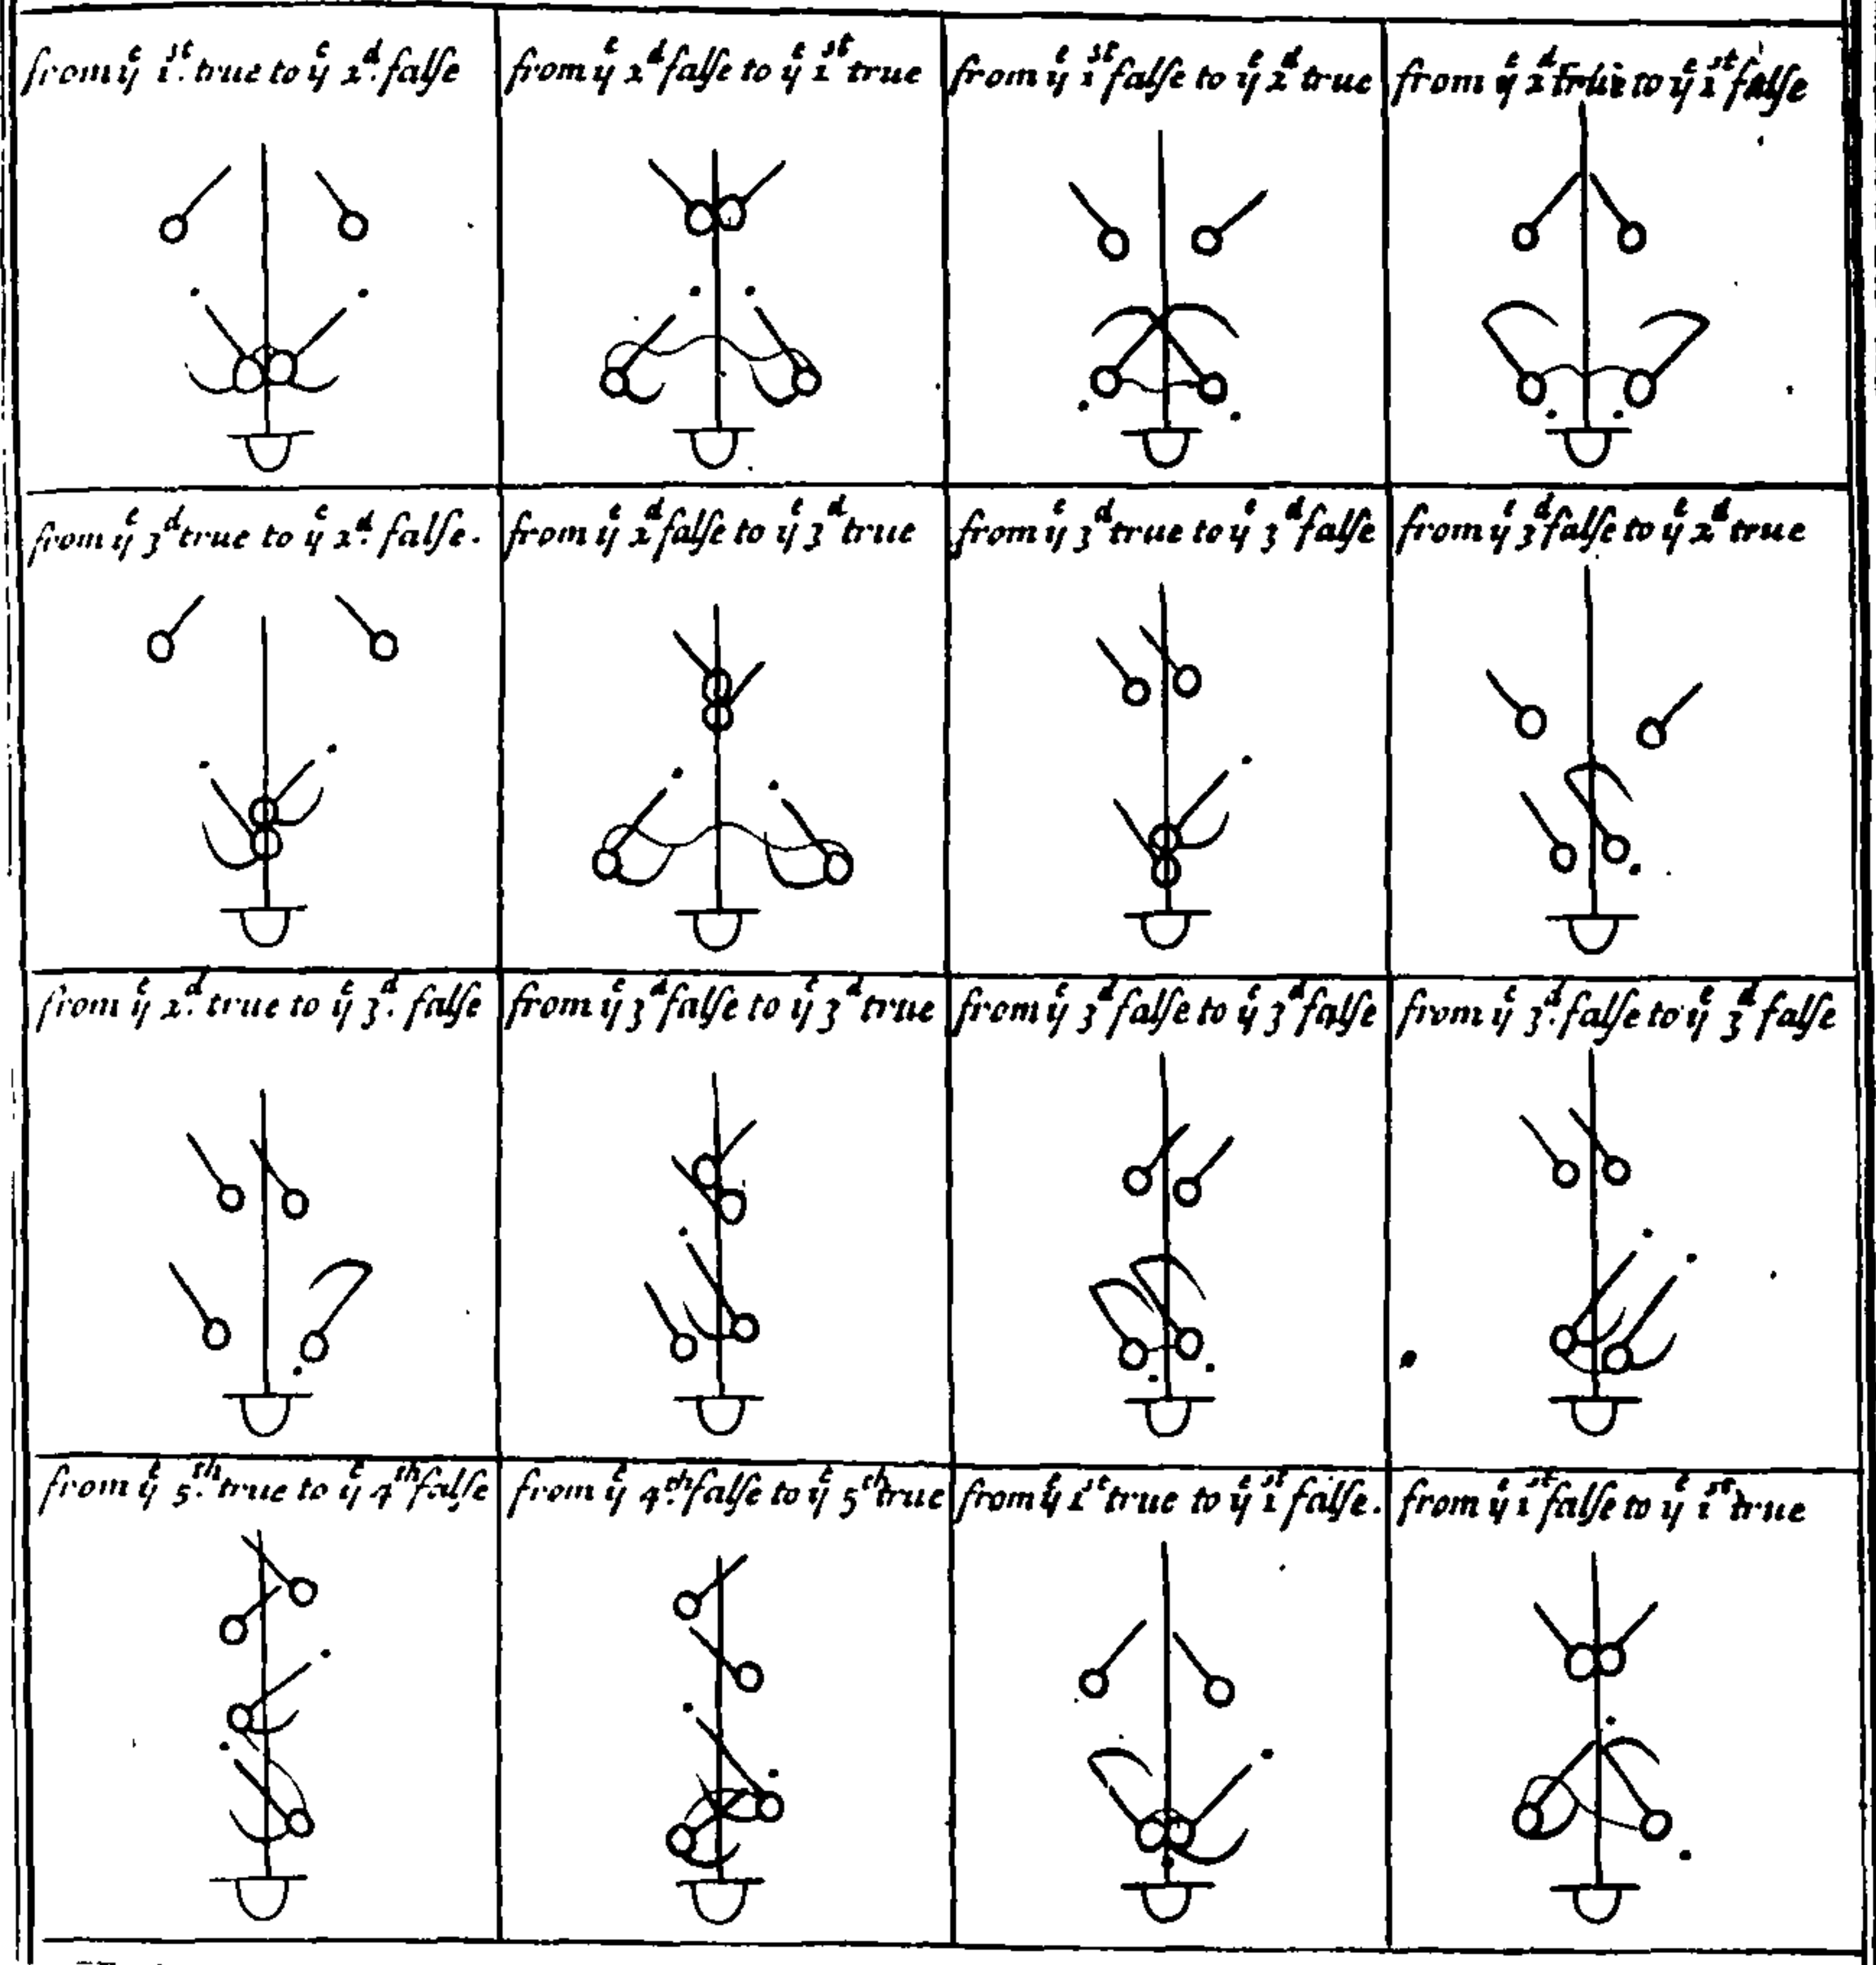 from yᵉ 1ˢᵗ. true to yᵉ 2ᵈ. falſe
from yᵉ 2ᵈ falſe to yᵉ 1ˢᵗ true
from yᵉ 1ˢᵗ falſe to yᵉ 2ᵈ true
from yᵉ 2ᵈ true to yᵉ 1ˢᵗ falſe
from yᵉ 3ᵈ true to yᵉ 2ᵈ. falſe.
from yᵉ 2ᵈ falſe to yᵉ 3ᵈ true
from yᵉ 3ᵈ true to yᵉ 3ᵈ falſe
from yᵉ 3ᵈ falſe to yᵉ 2ᵈ true
from yᵉ 2ᵈ. true to yᵉ 3ᵈ. falſe
from yᵉ 3ᵈ falſe to yᵉ 3ᵈ true
from yᵉ 3ᵈ falſe to yᵉ 3ᵈ falſe
from yᵉ 3ᵈ. falſe to yᵉ 3ᵈ falſe
from yᵉ 5ᵗʰ. true to yᵉ 4ᵗʰ falſe
from yᵉ 4ᵗʰ. falſe to yᵉ 5ᵗʰ true
from yᵉ 1ˢᵗ true to yᵉ 1ˢᵗ falſe.
from yᵉ 1ˢᵗ falſe to yᵉ 1ˢᵗ true